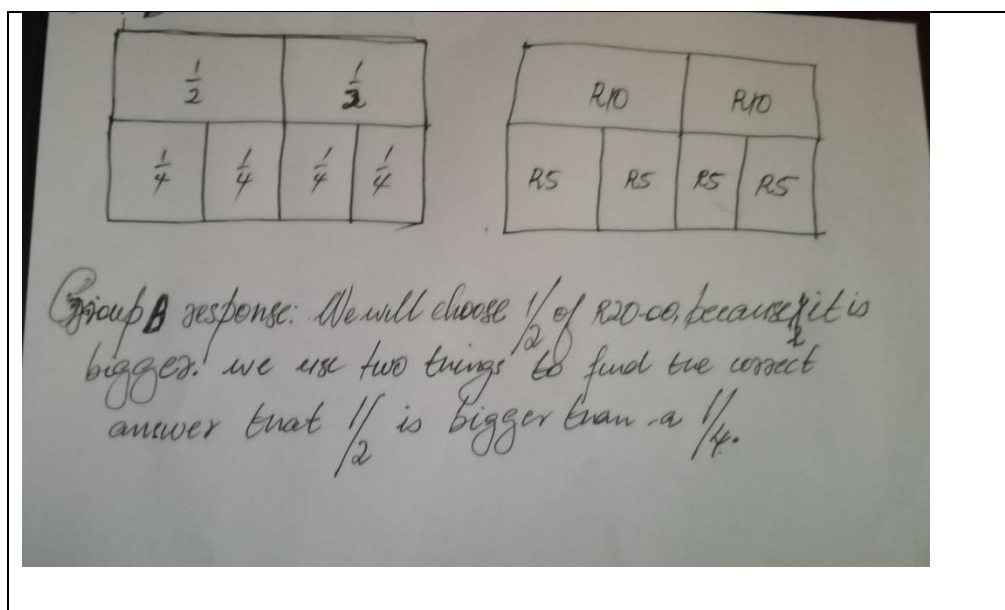 1/2 1/2
1/4 1/4 1/4 1/4
R10 R10
R5 R5 R5 R5
Group B response: We will choose 1/2 of R20-00, because it is
bigger. we use two things to find the correct
answer that 1/2 is bigger than a 1/4.